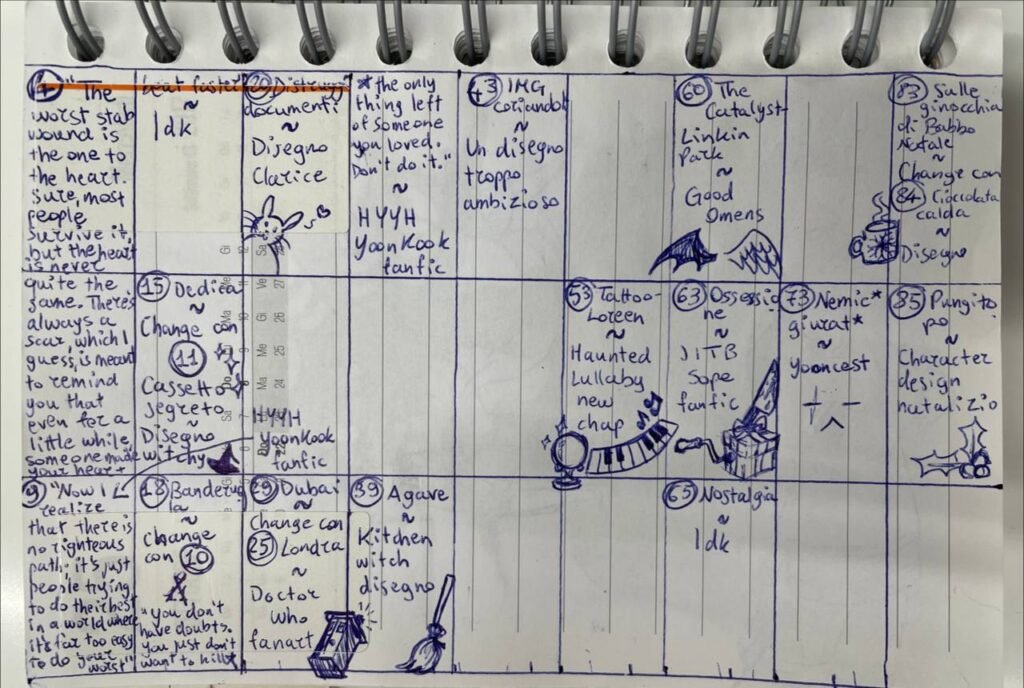 1 "The
worst stab
wound is
the one to
the heart.
Sure, most
people
survive it,
but the heart
is never
quite the
same. There's
always a
scar, which I
guess, is meant
to remind
you that
even for a
little while,
someone made
your heart
beat faster"
~
Idk
9 "Now I
realize
that there is
no righteous
path. it's just
people trying
to do their best
in a world where
it's far too easy
to do your
worst"
15 Dedica
~
Change con
11
Cassetto
segreto
~
Disegno
witchy
18 Banderuo
la
~
Change
con 10
"You don't
have doubts.
You just don't
want to kill"
20
documenti
~
Disegno
Clarice
HYYH
YoonKook
fanfic
29 Dubai
~
Change con
25 Londra
~
Doctor
Who
fanart
* the only
thing left
of someone
you loved.
Don't do it."
~
HYYH
YoonKook
fanfic
39 Agave
~
Kitchen
witch
disegno
43 IMG
coriandoli
~
Un disegno
troppo
ambizioso
53 Tattoo-
Loreen
~
Haunted
Lullaby
new
chap
60 The
Catalyst
Linkin
Park
~
Good
Omens
63 Ossessio
ne
~
JITB
Sope
fanfic
65 Nostalgia
~
Idk
73 Nemic*
giurat*
~
Yooncest
83 Sulle
ginocchia
di Babbo
Natale
~
Change con
84 Cioccolata
calda
~
Disegno
85 Pungito
po
~
Character
design
natalizio